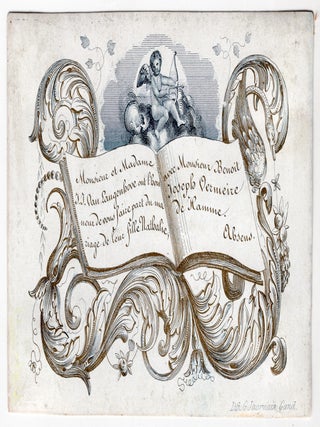 Monsieur et Madame
J.J. Van Langenhove ont l'hon-
neur de vous faire part du ma-
riage de leur fille Mathilde,
avec Monsieur Benoit
Joseph Vermeire
de Hamme.
Absens.
Lith. G. Gand.